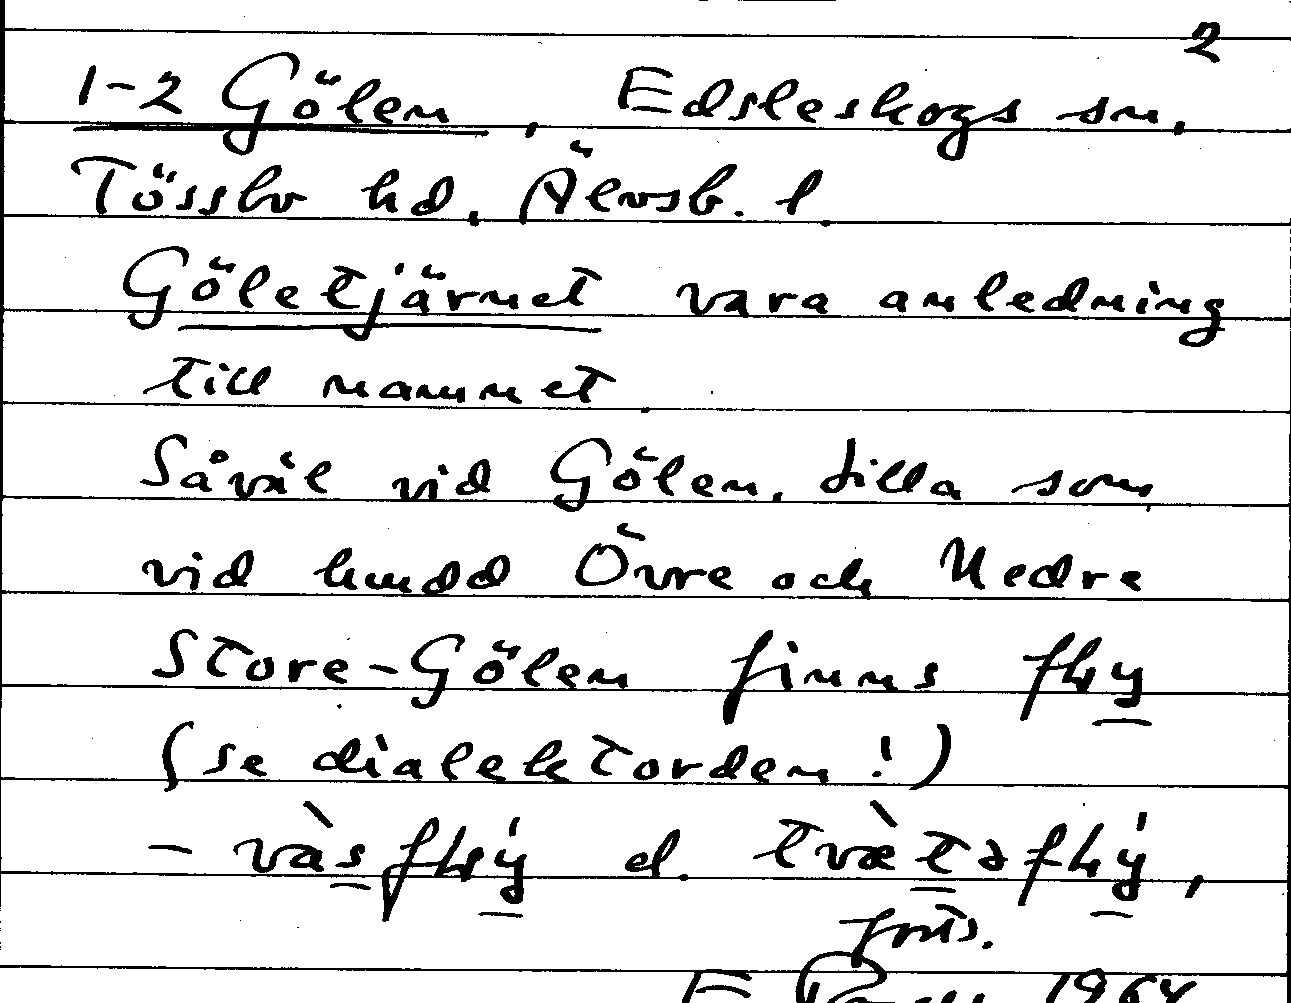 2
1-2 Gölen, Edsleskogs sn,
Tössbo hd, Älvsb. l.
Göletjärnet vara anledning
till namnet.
Såväl vid Gölen, Lilla som
vid Övre och Nedre
Store-Gölen finns
(se dialektorden!)
- el.
forts.
E 1964